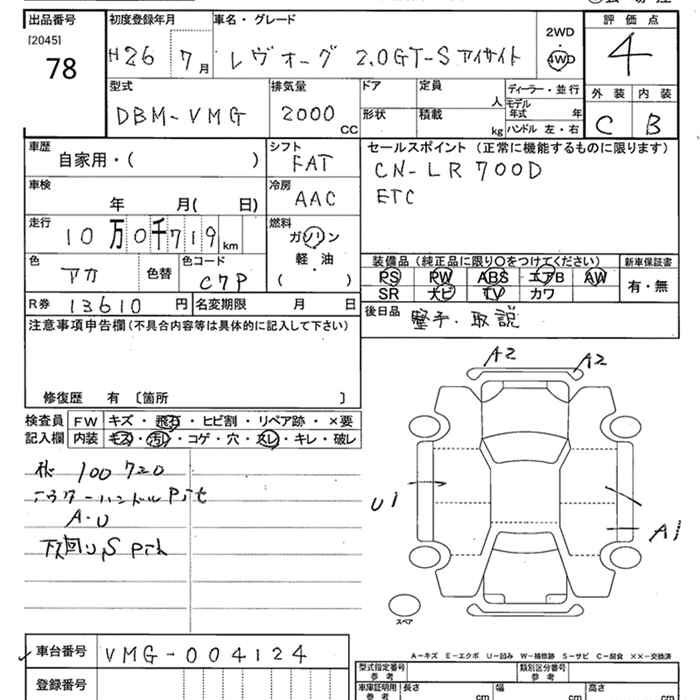 出品番号 初度登録年月 車名・グレード 評価点
[2045] 78 H26 7月 レヴォーグ 2.0GT-S アイサイト 2WD 4WD 4
型式 排気量 ドア 定員 人 ディーラー・並行 外装 内装
DBM-VMG 2000 CC 形状 積載 kg モデル年式 年 ハンドル 左・右 C B
車歴 シフト セールスポイント(正常に機能するものに限ります)
自家用・( ) FAT CN-LR700D
車検 冷房 ETC
年 月( 日) AAC
走行 燃料
10万0千719km ガソリン
軽・油
( )
色 色替 色コード 装備品(純正品に限り○をつけてください) 新車保証書
アカ C7P PS PW ABS エアB AW 有・無
SR ナビ TV カワ
R券 13610円 名変期限 月 日 後日品 取説
注意事項申告欄(不具合内容等は具体的に記入して下さい)
修復歴 有 〔箇所 〕
A2 A2
検査員 FW キズ・飛石・ヒビ割・リペア跡・×要
記入欄 内装 キズ・汚レ・コゲ・穴・スレ・キレ・破レ
100720
U1
A1
A・U
スペア
A-キズ E-エクボ U-凹み W-補修跡 S-サビ C-腐食 ××-交換済
車台番号 VMG-004124 型式指定番号 参考 類別区分番号 参考
登録番号 車庫証明用 参考 長さ cm 幅 cm 高さ cm